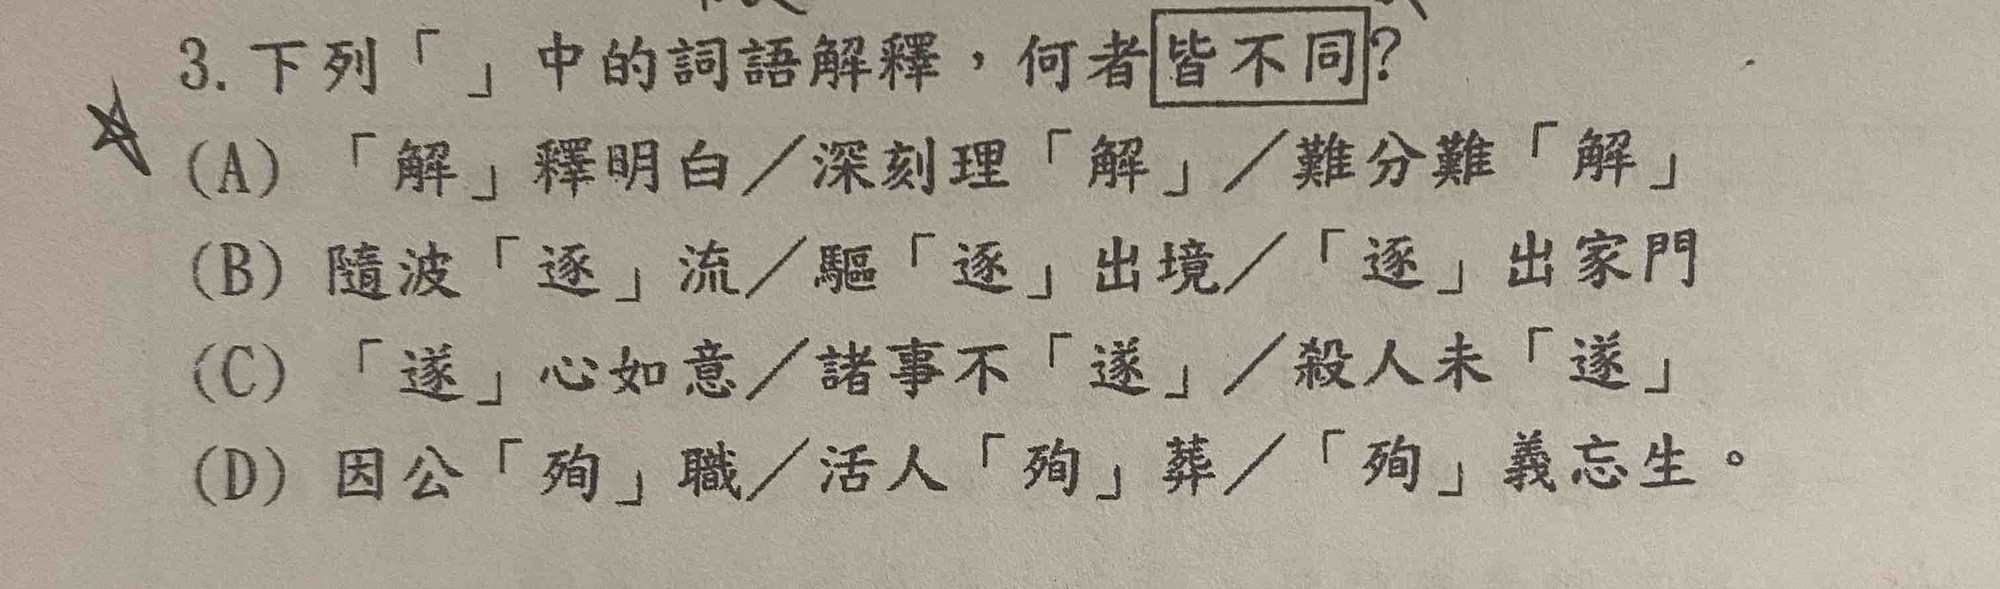 3. 下列「 」中的詞語解釋，何者皆不同?
(A) 「解」釋明白／深刻理「解」／難分難「解」
(B) 隨波「逐」流／驅「逐」出境／「逐」出家門
(C) 「遂」心如意／諸事不「遂」／殺人未「遂」
(D) 因公「殉」職／活人「殉」葬／「殉」義忘生。